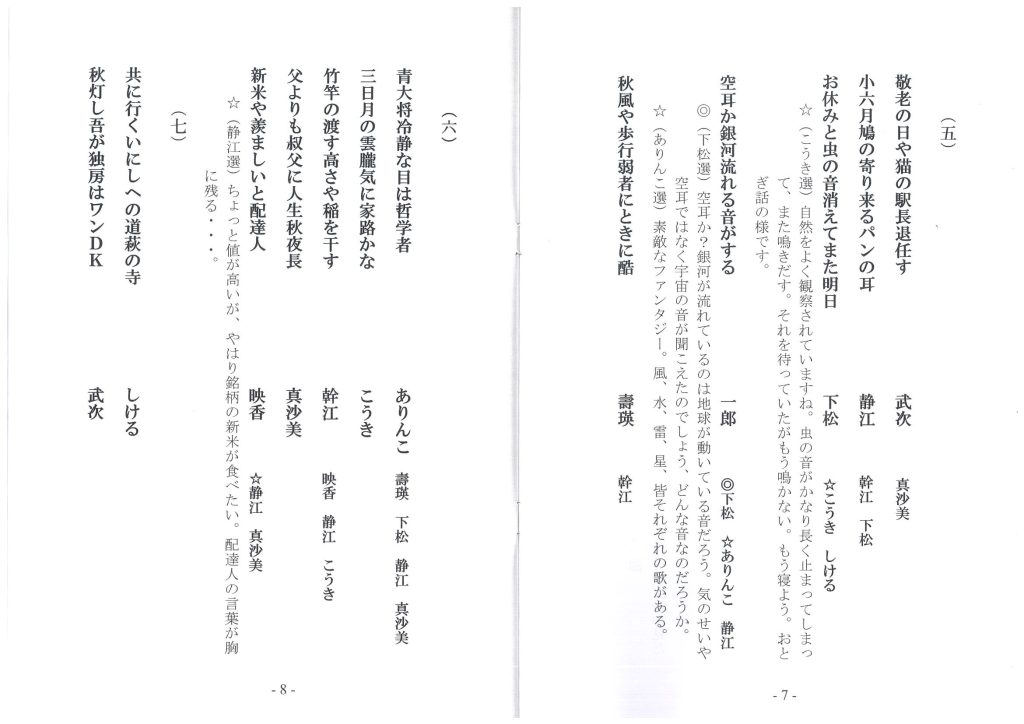 （五）
敬老の日や猫の駅長退任す　武次　真沙美
小六月鳩の寄り来るパンの耳　静江　幹江　下松
お休みと虫の音消えてまた明日　下松　☆こうき　しける
☆（こうき選）自然をよく観察されていますね。虫の音がかなり長く止まってしまっ
て、また鳴きだす。それを待っていたがもう鳴かない。もう寝よう。おと
ぎ話の様です。
空耳か銀河流れる音がする　一郎　◎下松　☆ありんこ　静江
◎（下松選）空耳か？銀河が流れているのは地球が動いている音だろう。気のせいや
空耳ではなく宇宙の音が聞こえたのでしょう、どんな音なのだろうか。
☆（ありんこ選）素敵なファンタジー。風、水、雷、星、皆それぞれの歌がある。
秋風や歩行弱者にときに酷　壽瑛　幹江
- 7 -
（六）
青大将冷静な目は哲学者　ありんこ　壽瑛　下松　静江　真沙美
三日月の雲朧気に家路かな　こうき
竹竿の渡す高さや稲を干す　幹江　映香　静江　こうき
父よりも叔父に人生秋夜長　真沙美
新米や羨ましいと配達人　映香　☆静江　真沙美
☆（静江選）ちょっと値が高いが、やはり銘柄の新米が食べたい。配達人の言葉が胸
に残る・・・。
（七）
共に行くいにしへの道萩の寺　しける
秋灯し吾が独房はワンＤＫ　武次
- 8 -